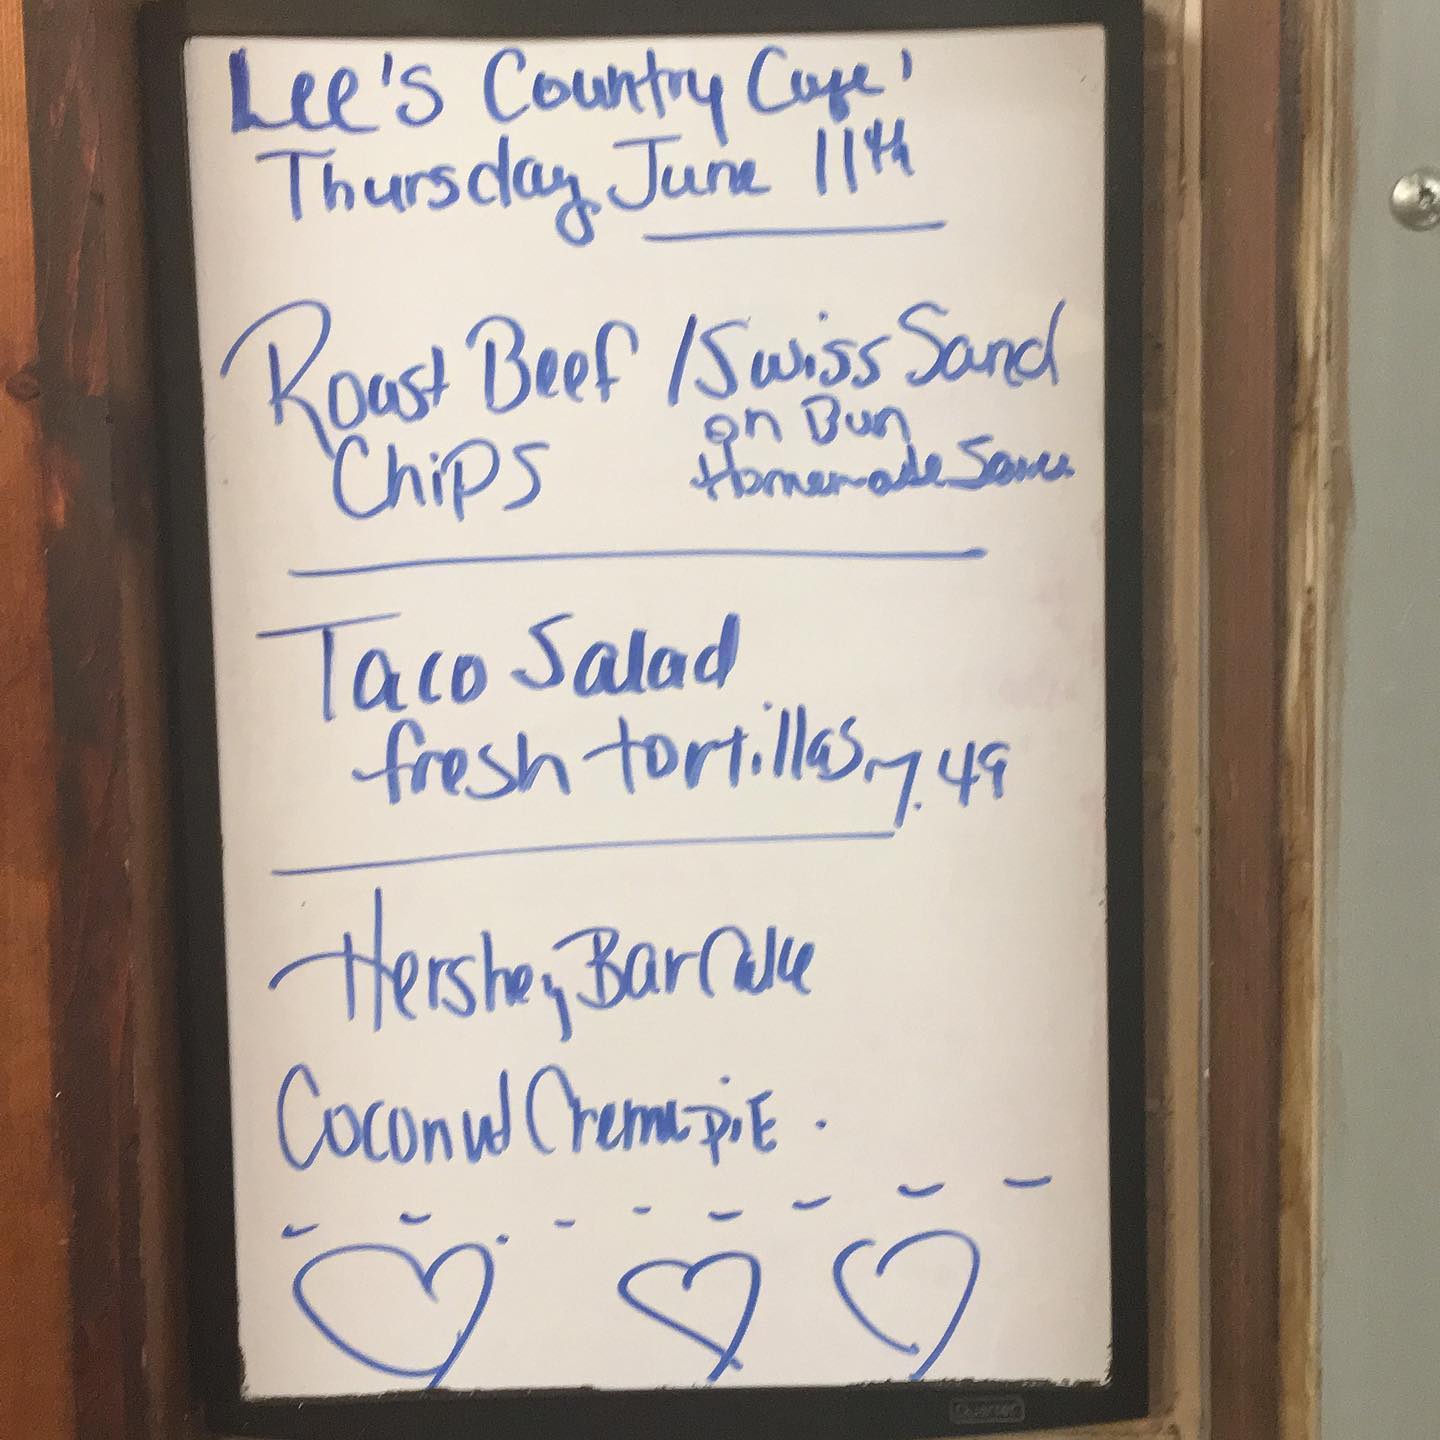 Lee's Country Cafe'
Thursday June 11th
Roast Beef / Swiss Sand
on Bun
Chips Homemade Sauce
Taco Salad
fresh tortillas 7.49
Hershey Bar Cake
Coconut Creme piE.
Quartet